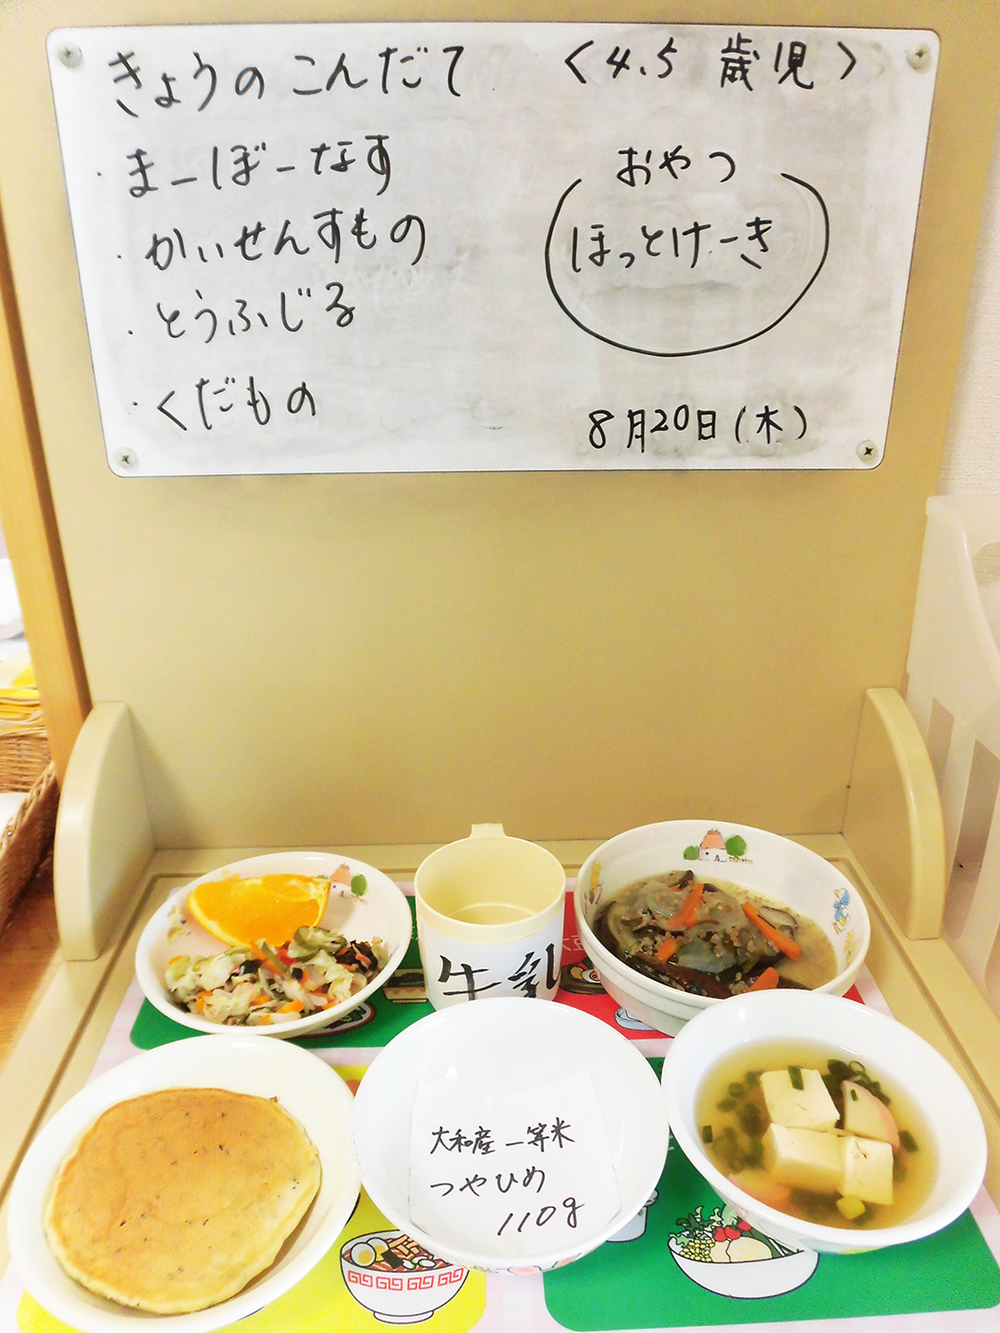 きょうの こんだて
〈4.5 歳児〉
・まーぼーなす
・かいせんすもの
・とうふじる
・くだもの
おやつ
ほっとけーき
8月20日(木)
牛乳
大和産一等米
つやひめ
110g